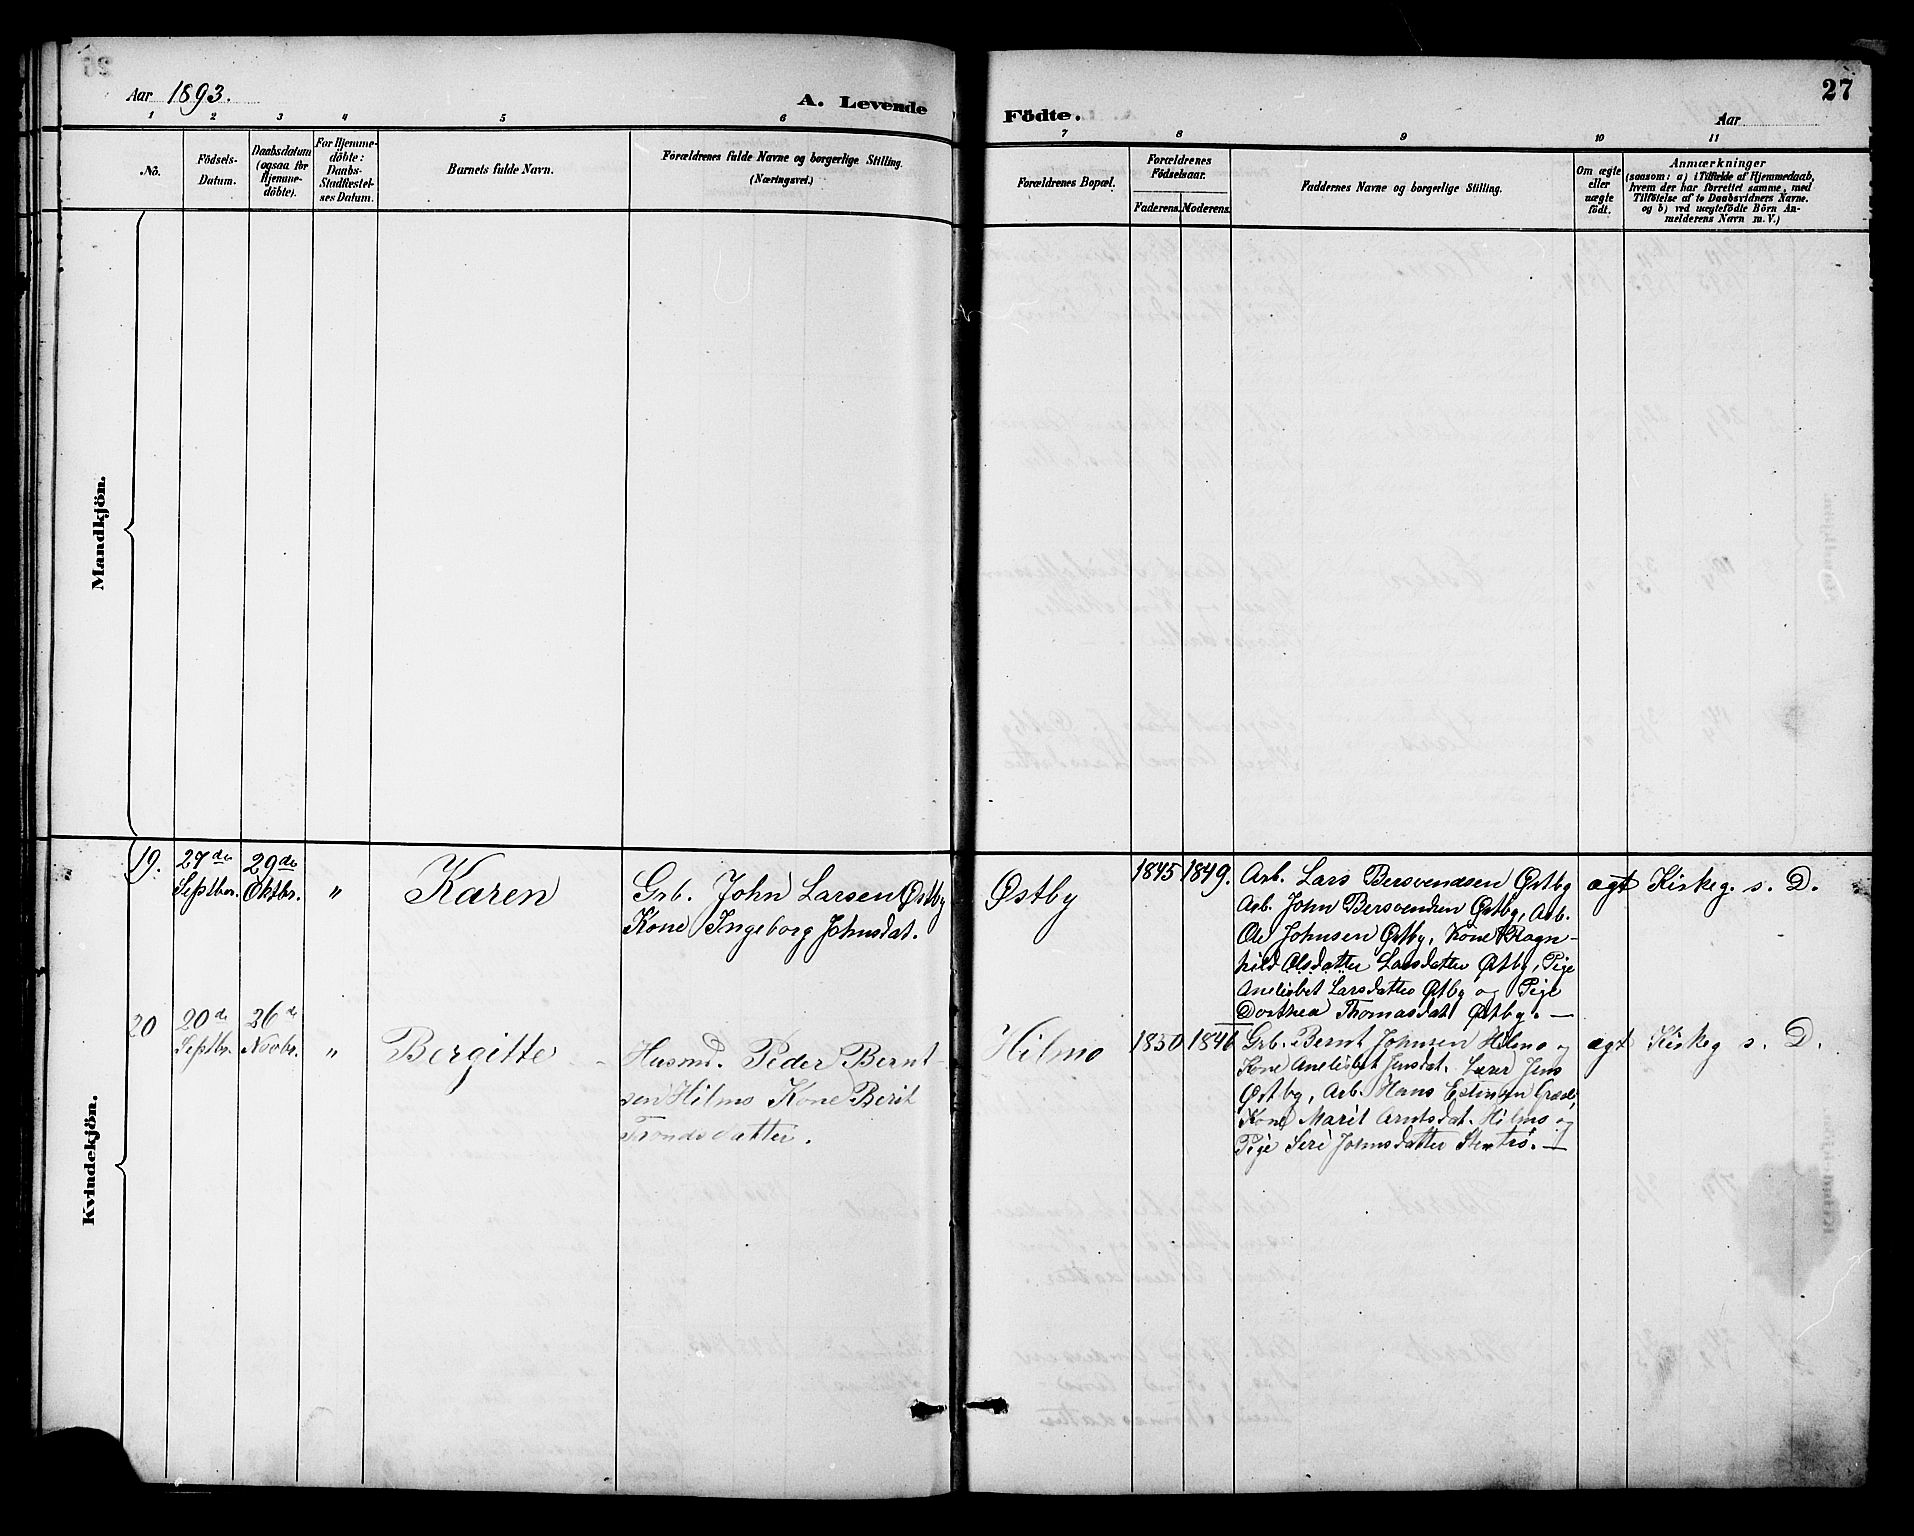 Aar 1893.
A. Levende
Födte.
Aar
27
1 2 3 4 5 6 7 8 9 10 11
No.
Födsels-
Datum.
Daabsdatum
(ogsaa for
Hjemme-
döbte).
For Hjemme-
döbte:
Daabs-
Stadfæstel-
ses Datum.
Barnets fulde Navn.
Forældrenes fulde Navne og borgerlige Stilling.
(Næringsvei.)
Forældrenes Bopæl.
Forældrenes
Födselsaar.
Faderens. Moderens.
Faddernes Navne og borgerlige Stilling.
Om ægte
eller
uægte
födt.
Anmærkninger
(saasom: a) i Tilfælde af Hjemmedaab,
hvem der har forrettet samme, med
Tilföielse af to Daabsvidners Navne.
og b) ved uægtefödte Börn An-
melderens Navn m. V.)
Mandkjön.
Kvindekjön.
19.
27de
Septbr.
29de
Oktbr.
"
Karen
Grb. John Larsen Østby
Kone Ingeborg Johnsdat.
Østby
1845 1849.
Arb. Lars Bersvendsen Østby
Arb. John Bersvendsen Østby, Arb.
Ole Johnsen Østby, Kone Ragn-
hild Olsdatter Larsdatter Østby, Pige
Anelisbet Larsdatter Østby og Pige
Dorthea Thomasdat Østby. —
ægt
Kirkeg. s. D.
20
20de
Septbr.
26de
Novbr.
"
Bergitte
Husmd. Peder Bernt-
sen Hilmo Kone Berit
Trondsdatter.
Hilmo
1850 1846
Grb. Bernt Johnsen Hilmo og
Kone Anelisbet Jensdat. Lærer Jens
Østby, Arb. Hans Estensen Græsli,
Kone Marit Arntsdat. Hilmo og
Pige Seri Johnsdatter Stentrö. —
ægt
Kirkeg s. D.